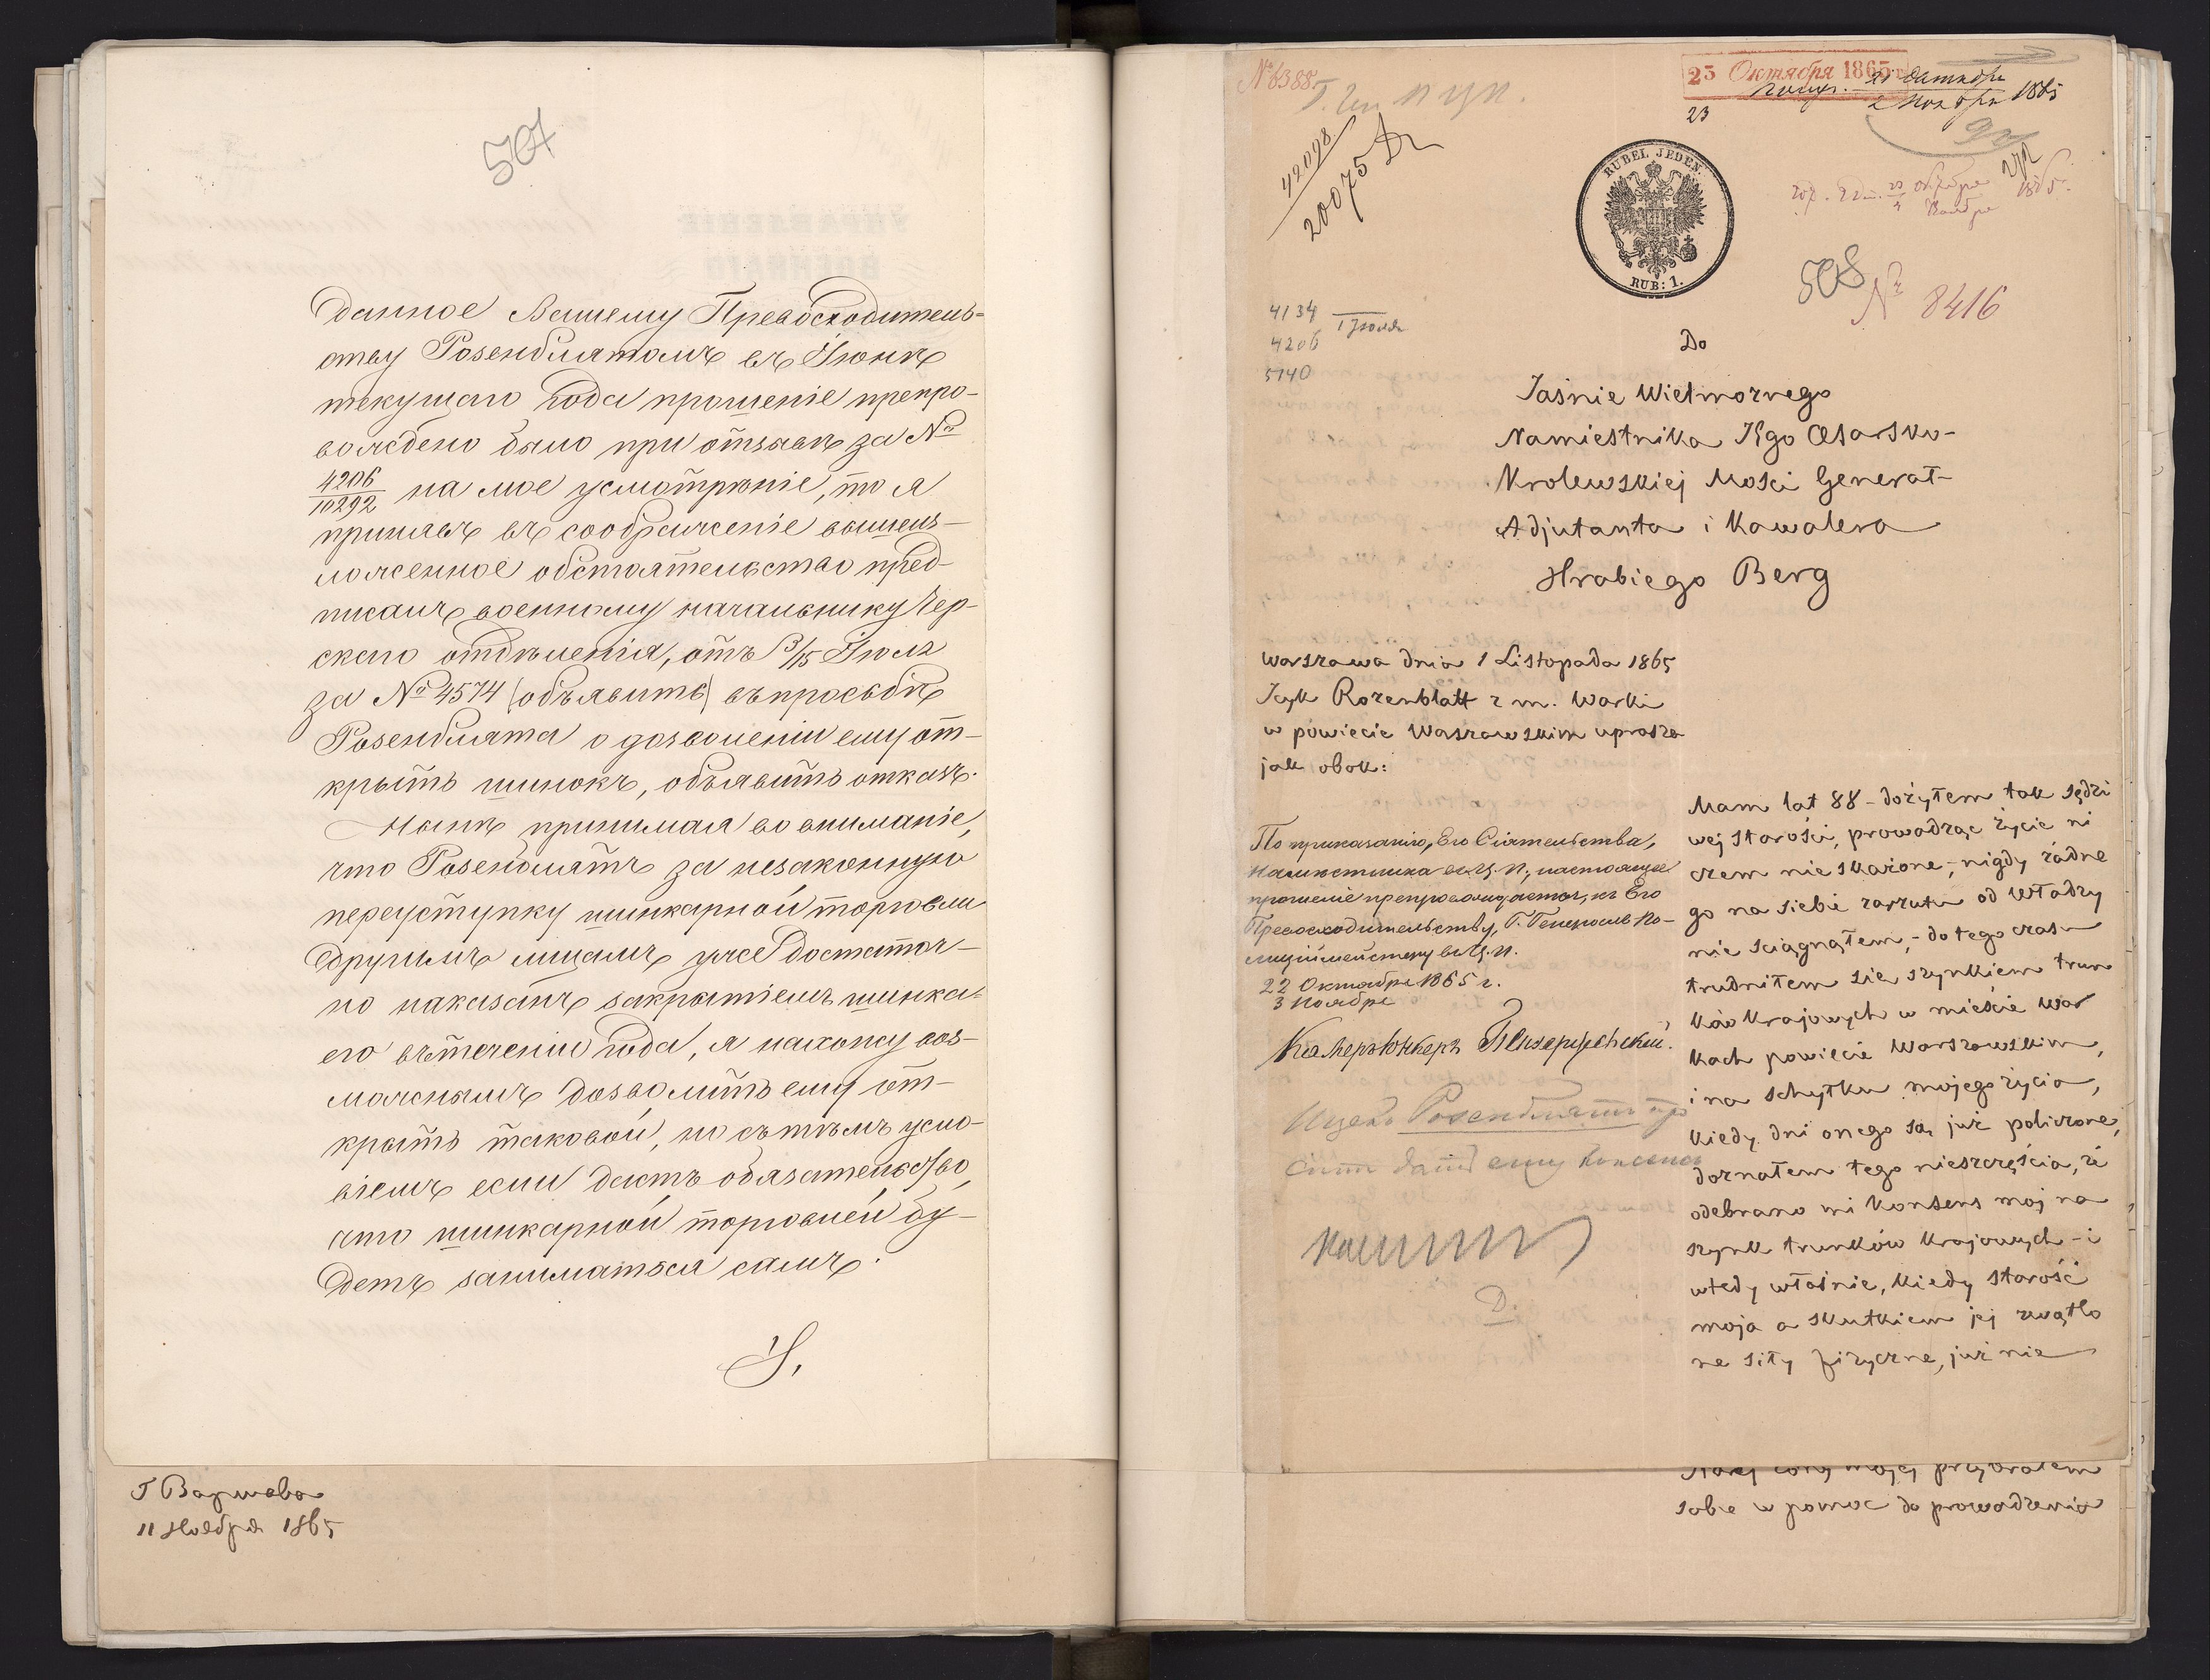 507
данное Вашему Превосходитель-
ству Розенблатомъ въ Іюнѣ
текущаго года прошеніе препро-
вождено было при отзывѣ за №
4206/10292 на мое усмотрѣніе, то я
принявъ въ соображеніе вышеиз-
ложенное обстоятельство пред-
писалъ военному начальнику Гер-
скаго отдѣленія, отъ 3/15 Іюля
за № 4574 (объявить) въ просьбѣ
Розенблата о дозволеніи ему от-
крыть шинокъ, объявить отказъ.
Нынѣ принимая во вниманіе,
что Розенблатъ за незаконную
переуступку шинкарной торговли
другимъ лицамъ уже достаточ-
но наказанъ закрытіемъ шинка
его въ теченіи года, я нахожу воз-
можнымъ дозволить ему от-
крыть таковой, но съ тѣмъ усло-
віемъ если дастъ обязательство,
что шинкарной торговлей бу-
детъ заниматься самъ.
Г Варшава
11 Ноября 1865
№ 6388
25 Октября 1865 г.
21 Октября
2 Ноября 1865
23
42098
20075
RUBEL JEDEN.
RUB: 1.
508
№ 8416
4134
4206
5140
1 Іюля
Do
Jaśnie Wielmożnego
Namiestnika Jego Cesarsko-
Krolewskiej Mości Generał-
Adjutanta i Kawalera
Hrabiego Berg
Warszawa dnia 1 Listopada 1865
Icyk Rozenblatt z m. Warki
w powiecie Warszawskim uprasza
jak obok:
По приказанію, Его Сіятельства,
Намѣстника въ Ц. П., настоящее
прошеніе препровождается, къ Его
Превосходительству, Г. Генералъ По-
лиціймейстеру въ Ц. П.
22 Октября 1865 г.
3 Ноября
Камеръ-Юнкеръ
Ицекъ Розенблатъ про
ситъ дать ему консенсъ
D.
Mam lat 88 - dożyłem tak sędzi
wej starości, prowadząc życie ni
czem nie skażone, - nigdy żadne
go na siebie zarzutu od Władzy
nie ściągnąłem, - do tego czasu
trudniłem się szynkiem trun
ków krajowych w mieście War
kach powiecie Warszawskim,
i na schyłku mojego życia,
kiedy dni onego są już policzone,
doznałem tego nieszczęścia, że
odebrano mi konsens moj na
szynk trunków krajowych - i
wtedy właśnie, kiedy starość
moja a skutkiem jej zwątlo
ne siły fizyczne, już nie
mojej przybrałem
sobie w pomoc do prowadzenia